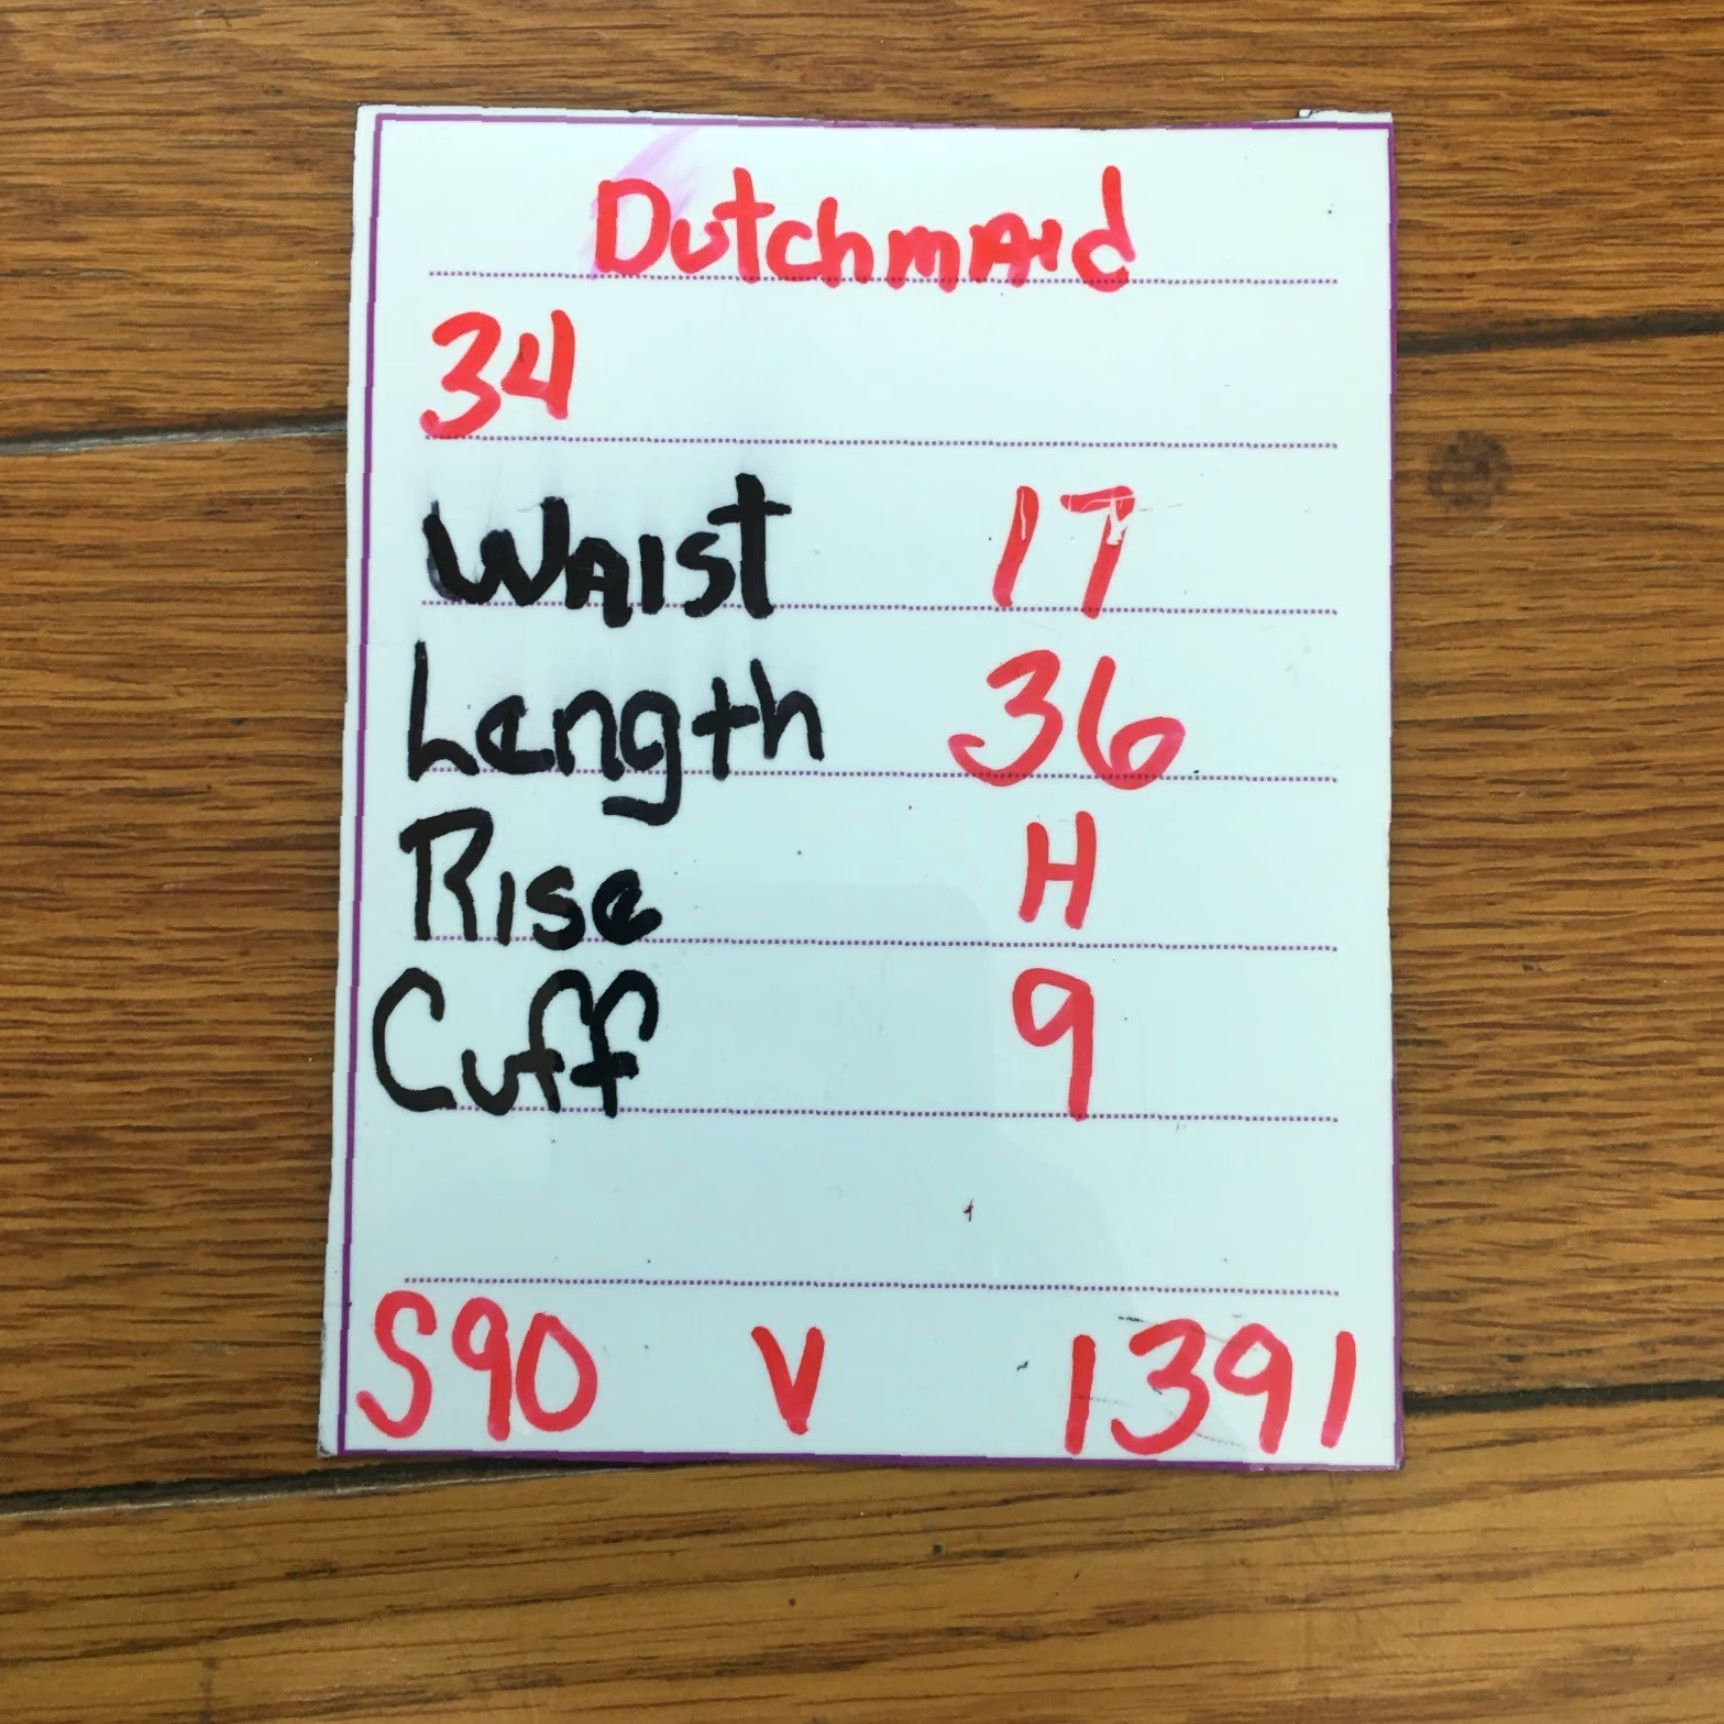 Dutchmaid
34
Waist 17
Length 36
Rise H
Cuff 9
S90 V 1391